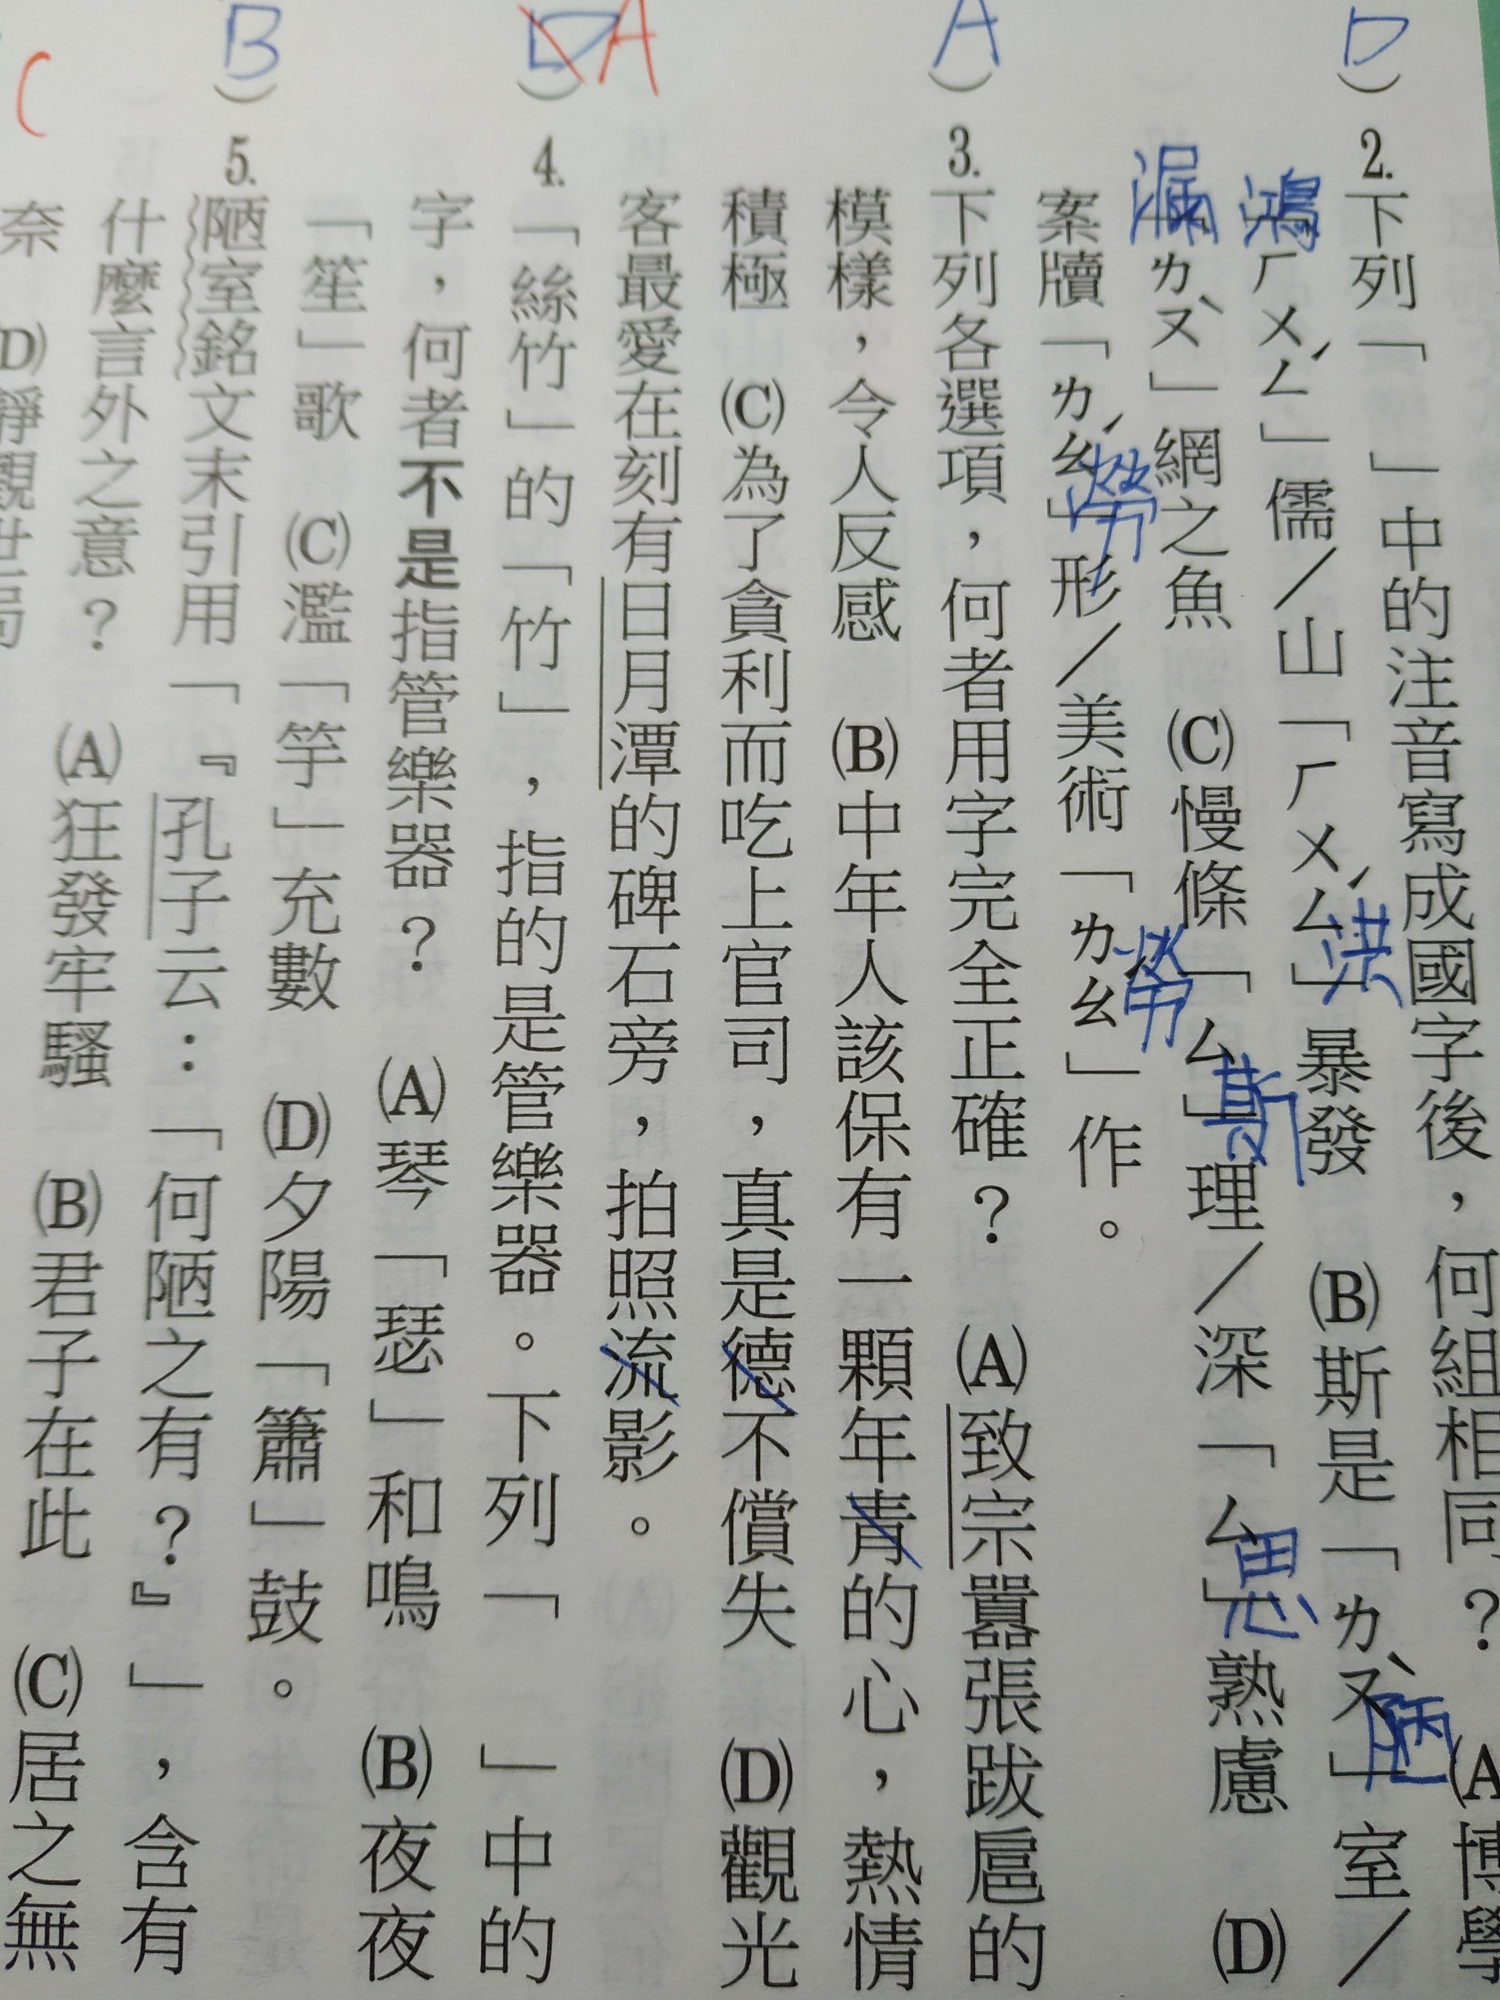 D
)2.下列「　」中的注音寫成國字後，何組相同？　(A)博學
鴻
「ㄏㄨㄥˊ」儒／山「ㄏㄨㄥˊ」暴發　(B)斯是「ㄌㄡˋ」室／
洪
陋
漏
「ㄌㄡˋ」網之魚　(C)慢條「ㄙ」理／深「ㄙ」熟慮　(D)
斯
思
案牘「ㄌㄠˊ」形／美術「ㄌㄠˊ」作。
勞
勞
A
)3.下列各選項，何者用字完全正確？　(A)致宗囂張跋扈的
模樣，令人反感　(B)中年人該保有一顆年青的心，熱情
積極　(C)為了貪利而吃上官司，真是德不償失　(D)觀光
客最愛在刻有日月潭的碑石旁，拍照流影。
D A
)4.「絲竹」的「竹」，指的是管樂器。下列「　」中的
字，何者不是指管樂器？　(A)琴「瑟」和鳴　(B)夜夜
「笙」歌　(C)濫「竽」充數　(D)夕陽「簫」鼓。
B
)5.陋室銘文末引用「『孔子云：「何陋之有？』」，含有
什麼言外之意？　(A)狂發牢騷　(B)君子在此　(C)居之無
奈　(D)靜觀世局
C